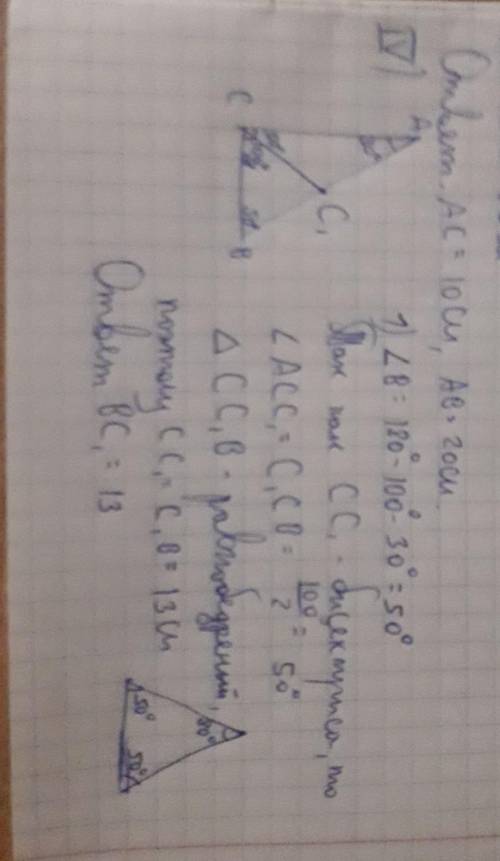 Ответ. AC = 10см, AB = 20см.
IV)
A
30°
C
C₁
B
1) ∠B = 180° - 100° - 30° = 50°
Так как CC₁ - бисектриса, то
∠ACC₁ = C₁CB = 100/2 = 50°
△CC₁B - равнобедренный,
поэтому CC₁ = C₁B = 13см
Ответ BC₁ = 13
80°
50°
50°